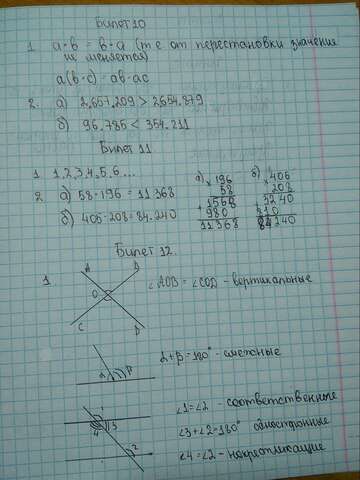 Билет 10
1. a·b = b·a (т.е. от перестановки значение
не меняется)
a(b-c) = ab-ac
2. а) 2.657.209 > 2654.879
б) 96.785 < 354.211
Билет 11
1. 1,2,3,4,5,6...
2 а) 58·196 = 11368
б) 405·208 = 84.240
а) × 196
58
+ 1568
980
11368
б) × 405
208
+ 3240
810
84240
Билет 12.
1. A B
O
C D
∠AOB = ∠COD - вертикальные
α β
α+β=180° - смежные
1
4 3
2
∠1=∠2 - соответственные
∠3+∠2=180° односторонние
∠4=∠2 - накрест лежащие